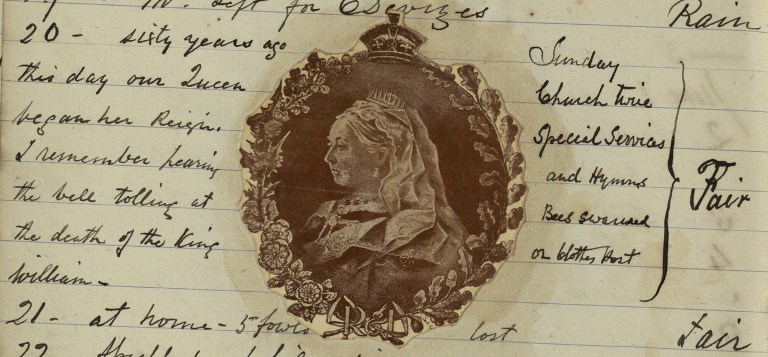 left for Devizes Rain
20 - sixty years ago
this day our Queen
began her Reign.
I remember hearing
the bell tolling at
the death of the King
William -
Sunday
Church twice
Special Services
and Hymns
Bees swarmed
on Clothes Post
Fair
21 - at home - 5 fowls lost Fair
22